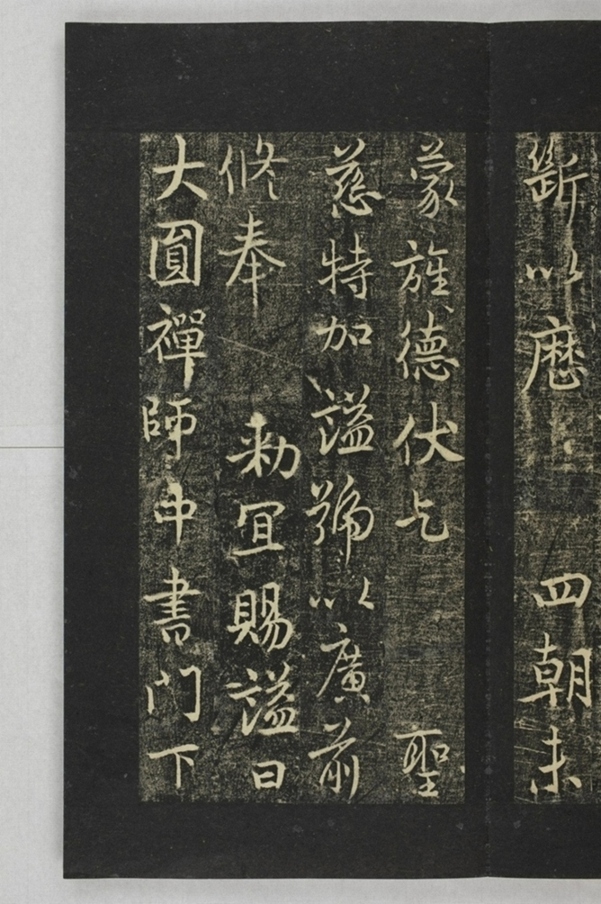 斷以歷四朝未
蒙旌德伏乞聖
慈特加謚號以廣前
修奉勑宜賜謚曰
大圓禪師中書門下